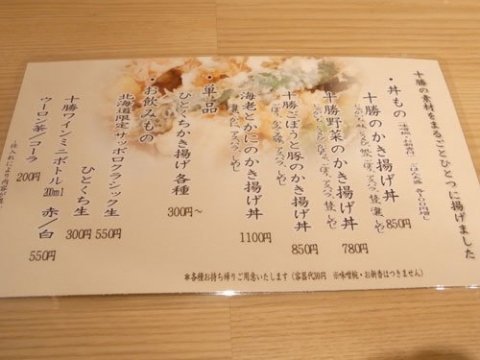 十勝の素材をまるごとひとつに揚げました
・丼もの
十勝のかき揚げ丼 850円
十勝野菜のかき揚げ丼 780円
十勝ごぼうと豚のかき揚げ丼 850円
海老とかにのかき揚げ丼 1100円
・単品
ひとくちかき揚げ 各種 300円～
・お飲みもの
北海道限定サッポロクラシック生 550円
ひとくち生 300円
十勝ワインミニボトル 200ml 赤／白 550円
ウーロン茶／コーラ 200円
＊各種お持ち帰りご用意いたします（容器代30円 ※味噌椀・お新香はつきません）